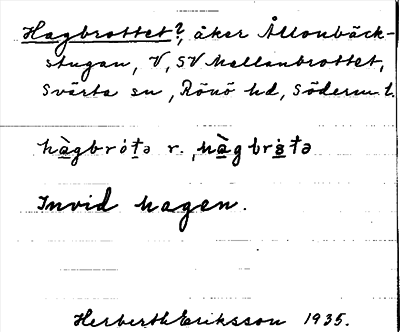 Hagbrottet?, åker Ållonbäck-
stugan, V, SV Mellanbrottet,
Svärta sn, Rönö hd, Söderm. l.
hàgbró̤tə r., hàgbrò̤tə
Invid hagen.
Herberth Eriksson 1935.